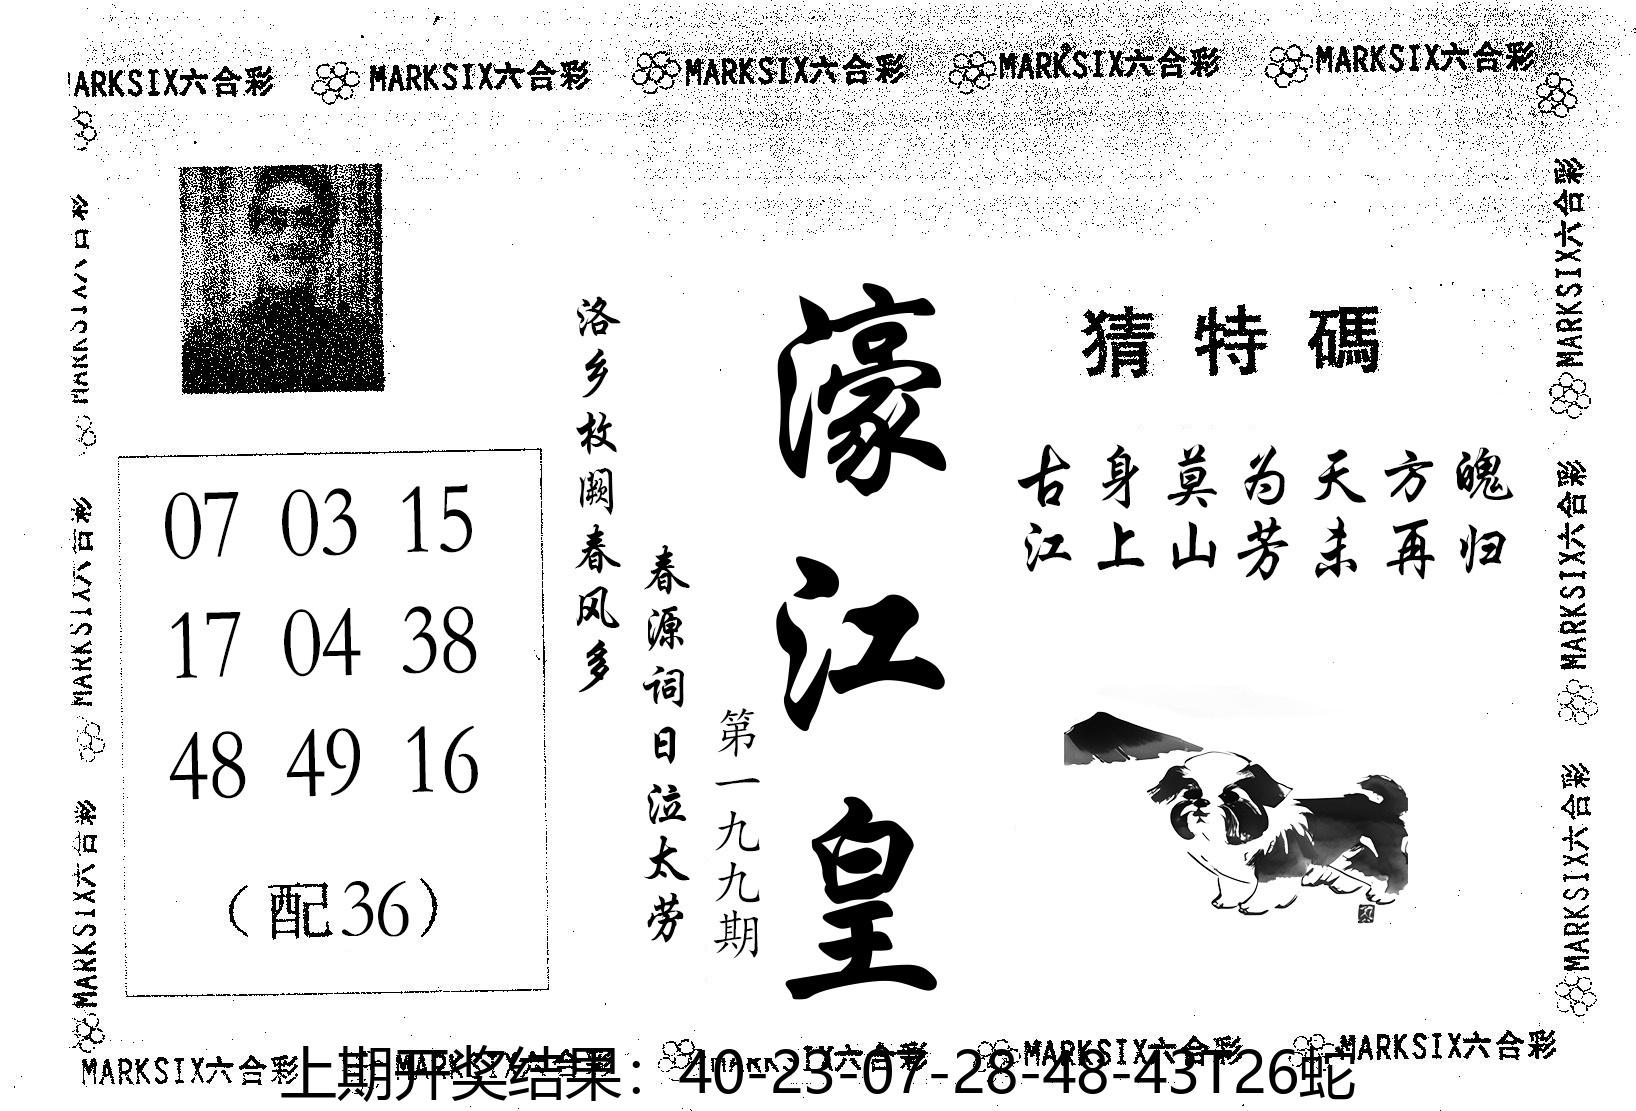 MARKSIX六合彩 MARKSIX六合彩 MARKSIX六合彩 MARKSIX六合彩 MARKSIX六合彩
猜特碼
古身莫为天方魄
江上山芳未再归
濠江皇
第一九九期
洛乡枚阙春风多
春源词日泣太劳
07 03 15
17 04 38
48 49 16
（配36）
MARKSIX六合彩
MARKSIX六合彩
MARKSIX六合彩
MARKSIX六合彩
MARKSIX六合彩
MARKSIX六合彩
MARKSIX六合彩 MARKSIX六合彩 MARKSIX六合彩 MARKSIX六合彩 MARKSIX六合彩
上期开奖结果：40-23-07-28-48-43T26蛇